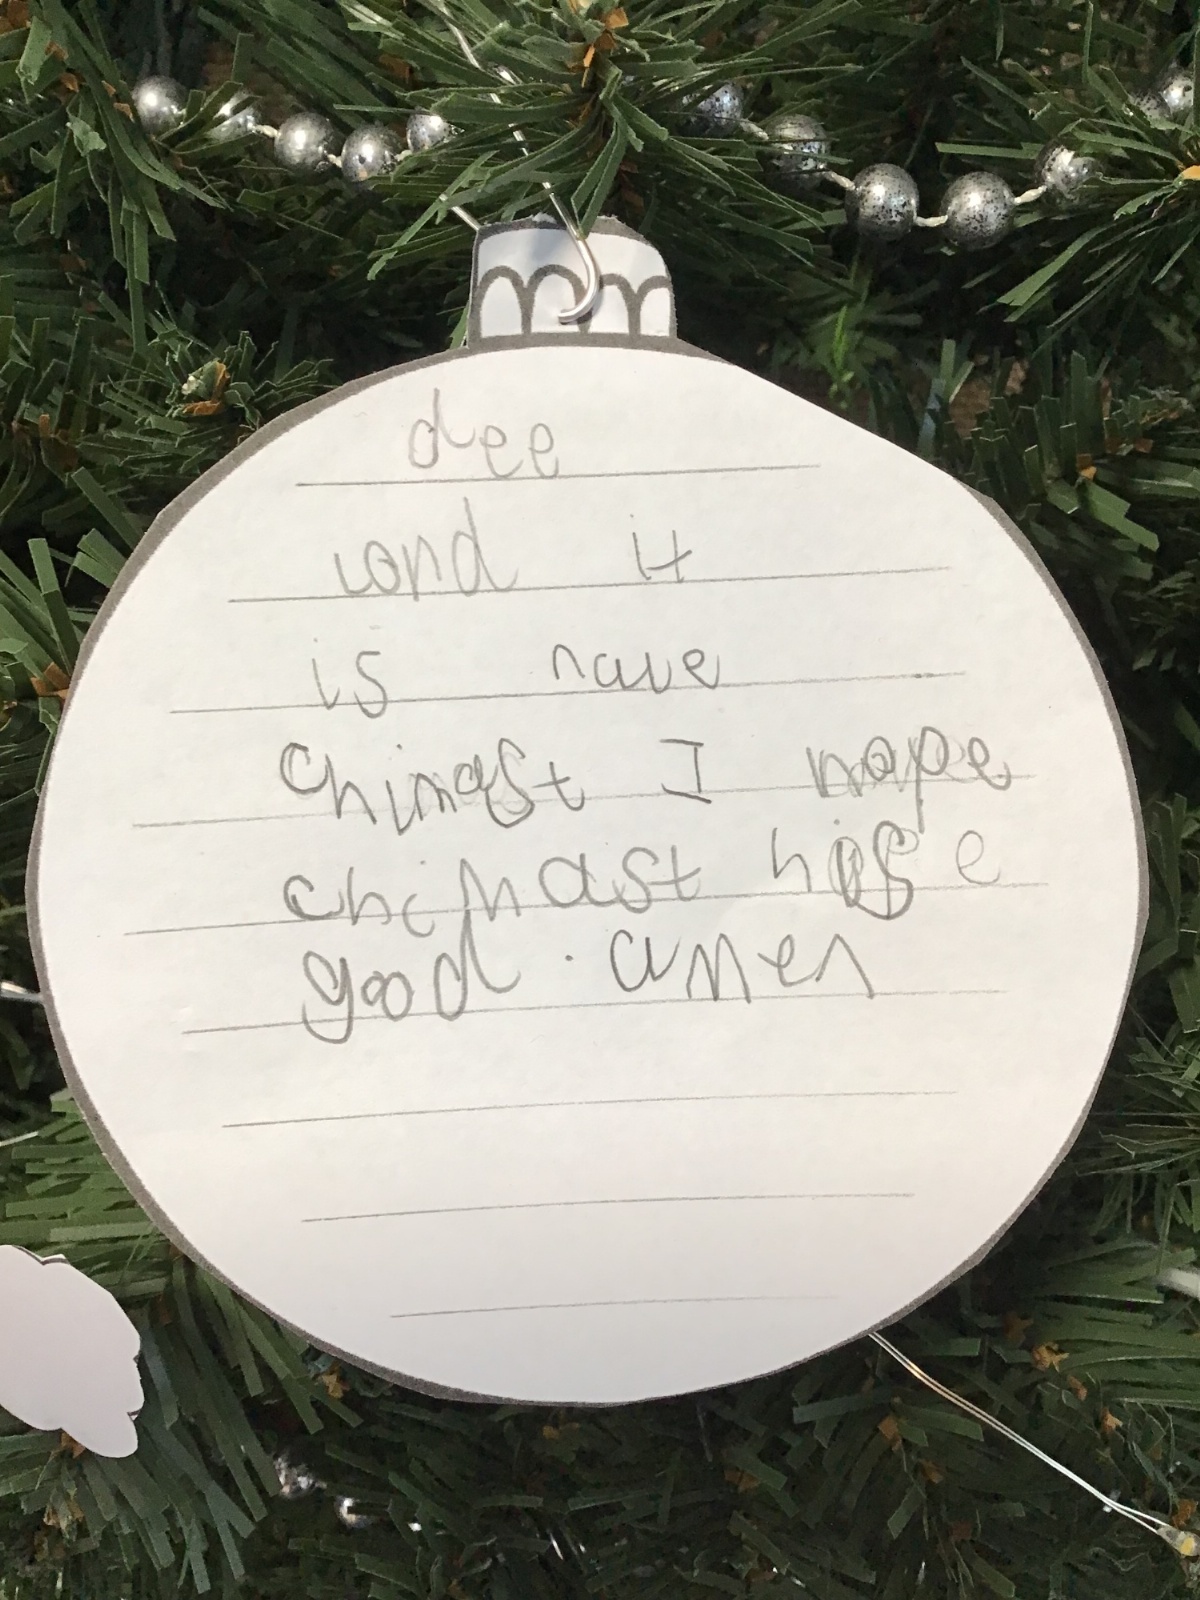 dee
lord it
is nave
chimast I hope
chimast hose
good. amen